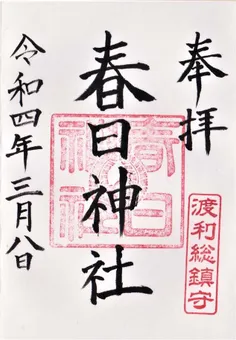 奉拝
渡利総鎮守
春日神社
春日
神社
令和四年三月八日